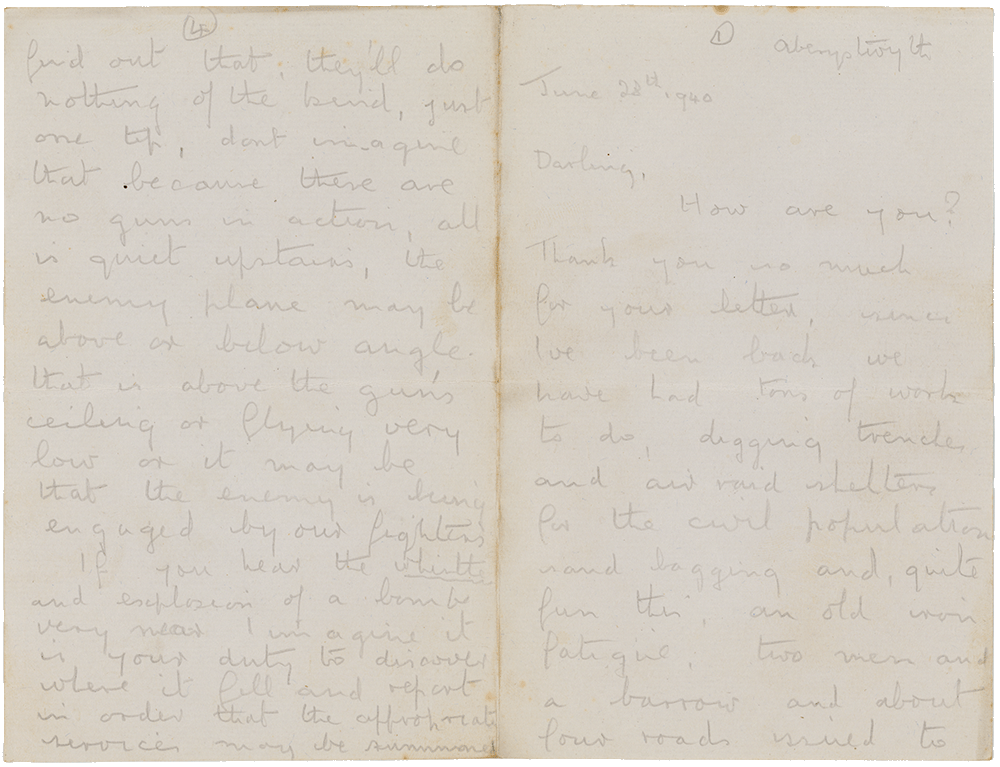 4
find out that, they'll do
nothing of the kind, just
one tip, dont imagine
that because there are
no guns in action, all
is quiet upstairs, the
enemy plane may be
above or below angle.
that is above the gun's
ceiling or flying very
low or it may be
that the enemy is being
engaged by our fighters
If you hear the whistle
and explosion of a bomb
very near I imagine it
is your duty to discover
where it fell and report
in order that the appropriate
services may be summoned
1
Aberystwyth
June 28th, 1940
Darling,
How are you?
Thank you so much
for your letter, since
I've been back we
have had tons of work
to do, digging trenches
and air raid shelters
for the civil population
sand bagging and, quite
fun this, an old iron
fatigue, two men and
a barrow and about
four roads issued to